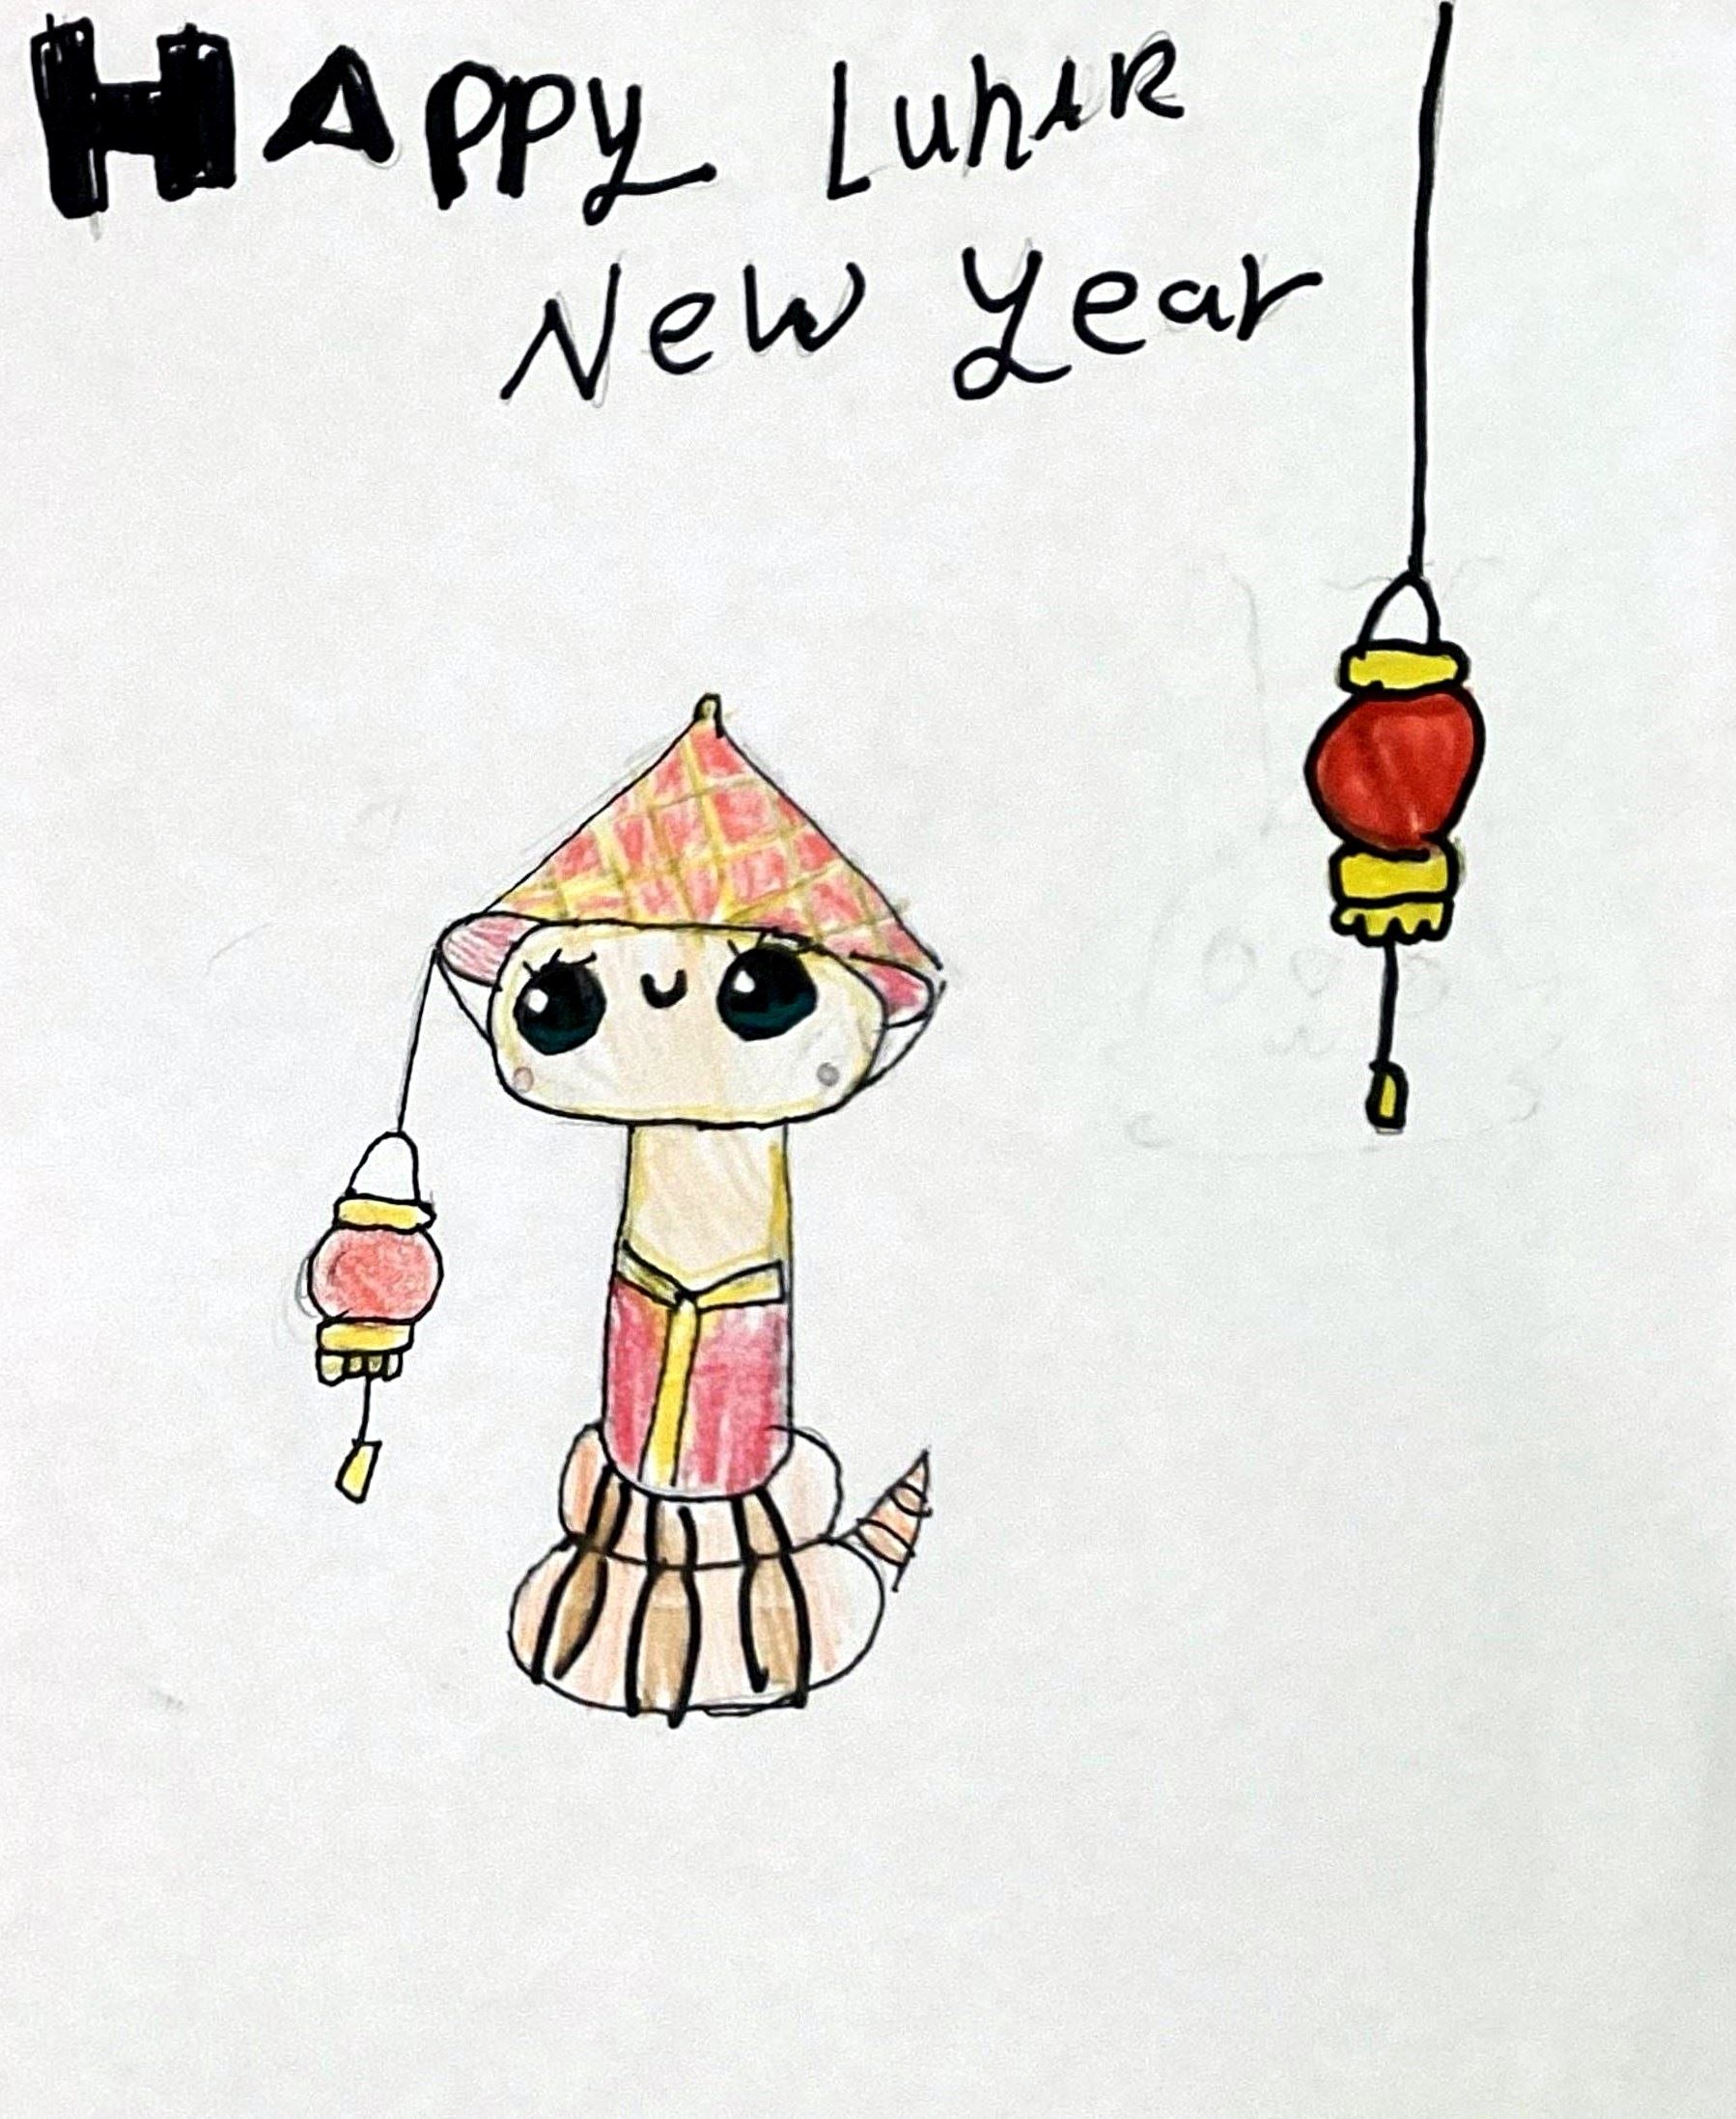 HAppy LunAR
New Year